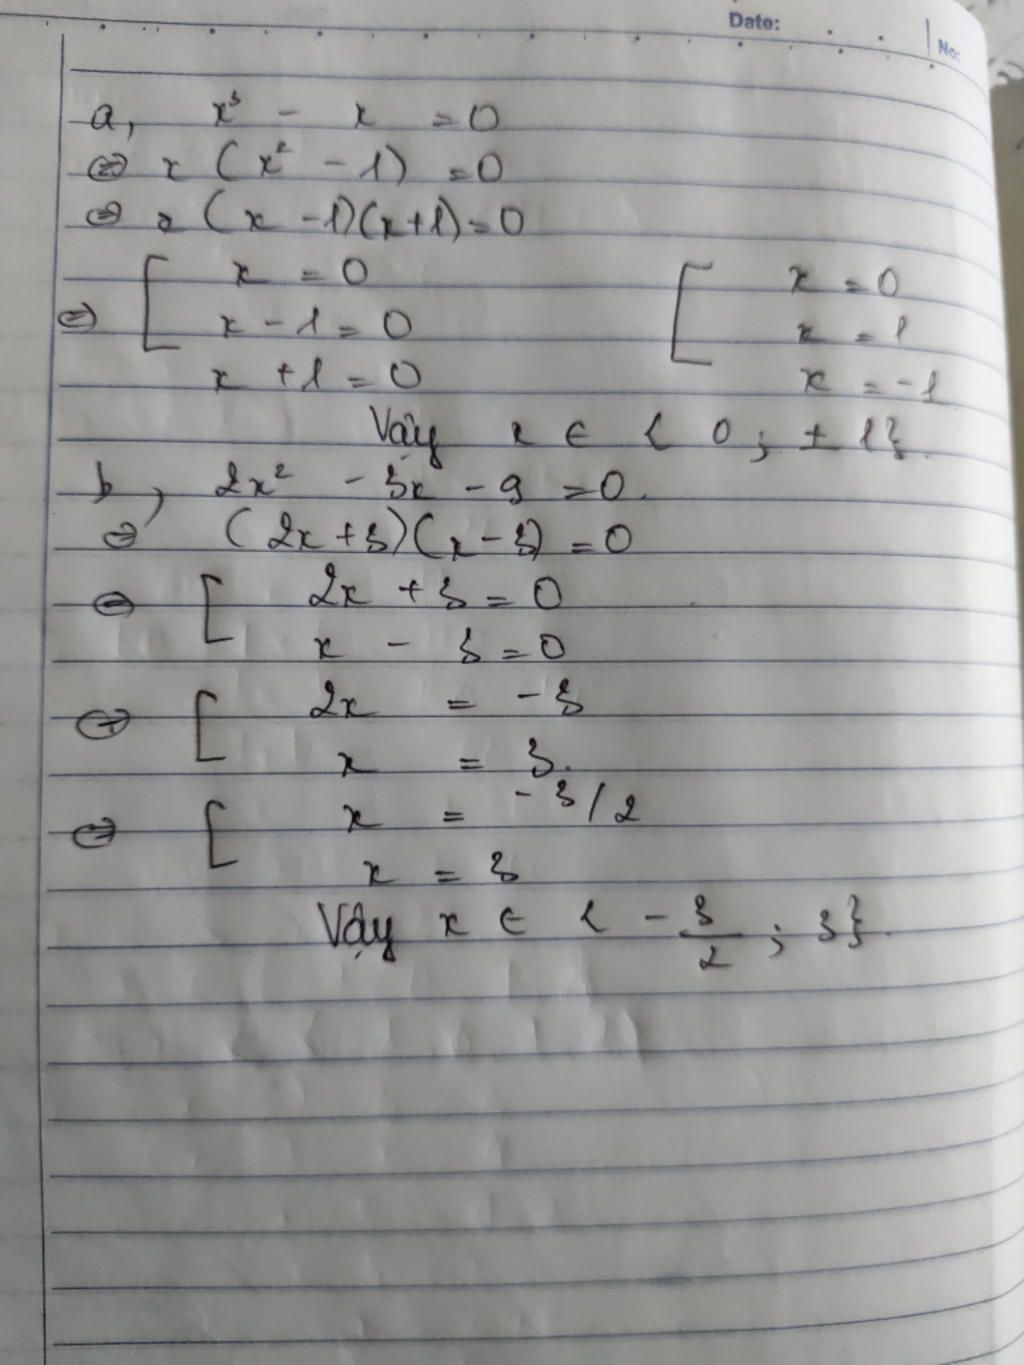 Date:
No:
a, x³ - x = 0
⇔ x (x² - 1) = 0
⇔ x (x - 1)(x + 1) = 0
⇔ [ x = 0 [ x = 0
x - 1 = 0 x = 1
x + 1 = 0 x = -1
Vậy x ∈ { 0 ; ± 1}.
b, 2x² - 3x - 9 = 0.
⇔ (2x + 3)(x - 3) = 0
⇔ [ 2x + 3 = 0
x - 3 = 0
⇔ [ 2x = -3
x = 3.
⇔ [ x = -3/2
x = 3
Vậy x ∈ { -3/2 ; 3}.